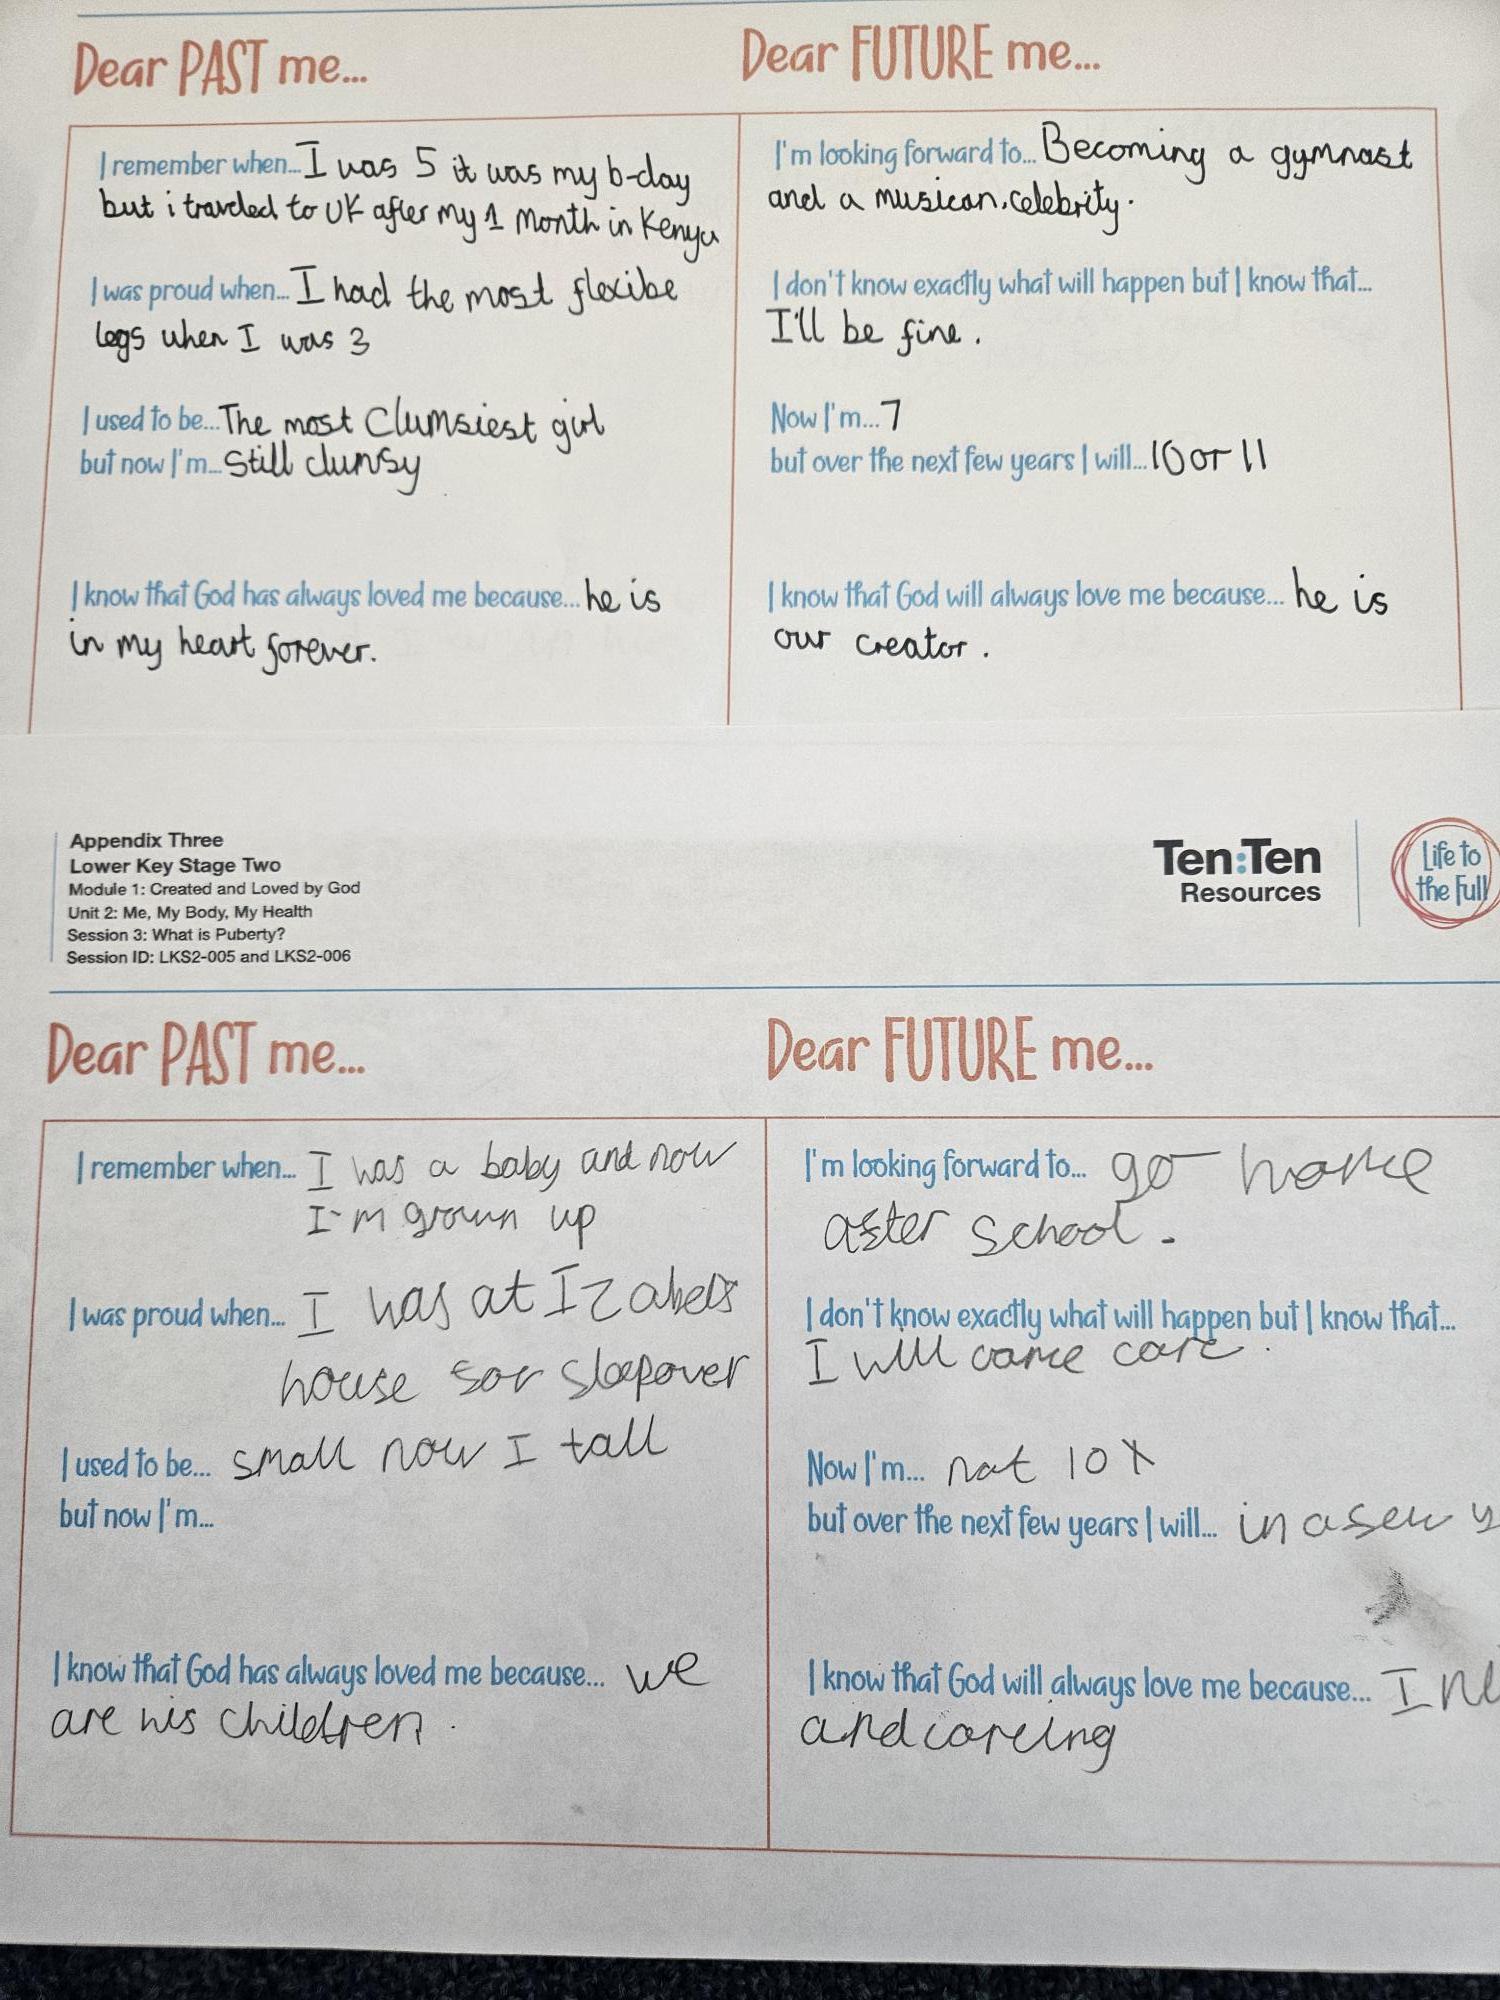 Dear PAST me...
Dear FUTURE me...
I remember when... I was 5 it was my b-day
but i travcled to UK after my 1 Month in Kenya
I was proud when... I had the most flexibe
legs when I was 3
I used to be... The most Clumsiest girl
but now I'm... Still clumsy
I know that God has always loved me because... he is
in my heart forever.
I'm looking forward to... Becoming a gymnast
and a musican, celebrity.
I don't know exactly what will happen but I know that...
I'll be fine.
Now I'm... 7
but over the next few years I will... 10 or 11
I know that God will always love me because... he is
our creator.
Appendix Three
Lower Key Stage Two
Module 1: Created and Loved by God
Unit 2: Me, My Body, My Health
Session 3: What is Puberty?
Session ID: LKS2-005 and LKS2-006
Ten:Ten
Resources
Life to
the Full
Dear PAST me...
Dear FUTURE me...
I remember when... I was a baby and now
I'm grown up
I was proud when... I was at Izabels
house for sleepover
I used to be... small now I tall
but now I'm...
I know that God has always loved me because... we
are his children.
I'm looking forward to... go home
after school.
I don't know exactly what will happen but I know that...
I will care.
Now I'm... not 10
but over the next few years I will... in a few
I know that God will always love me because... I
and careing